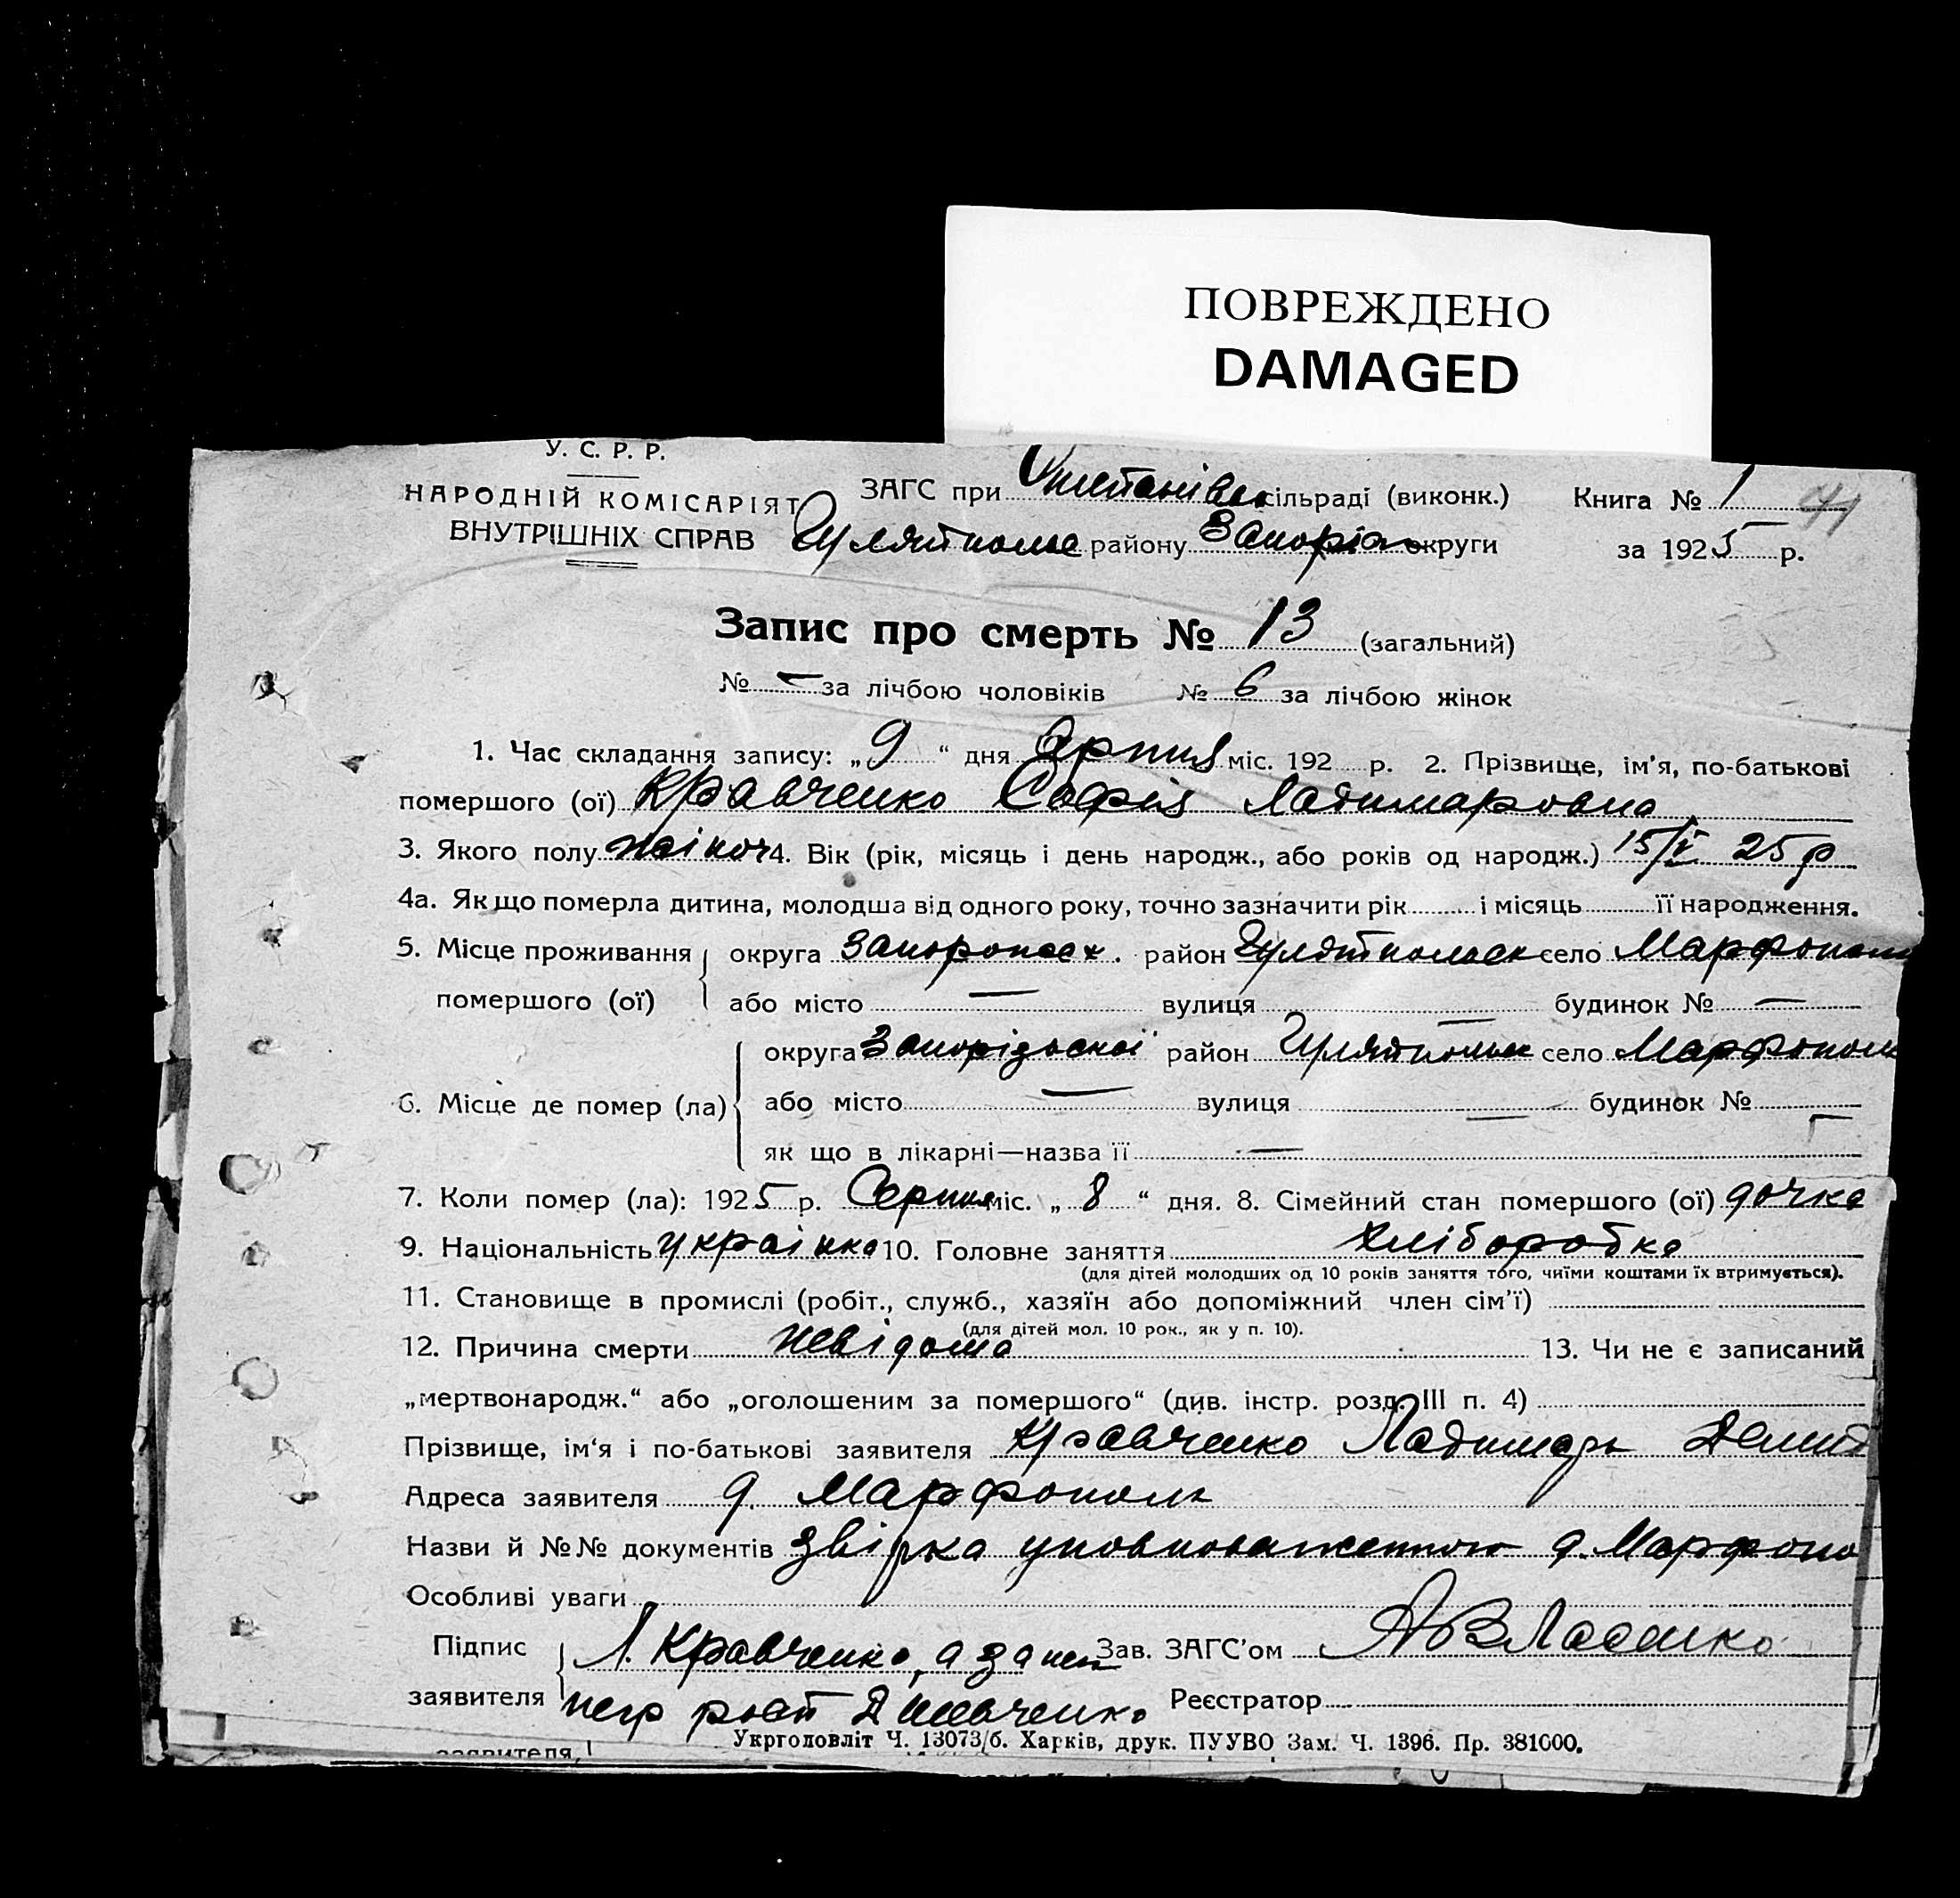 ПОВРЕЖДЕНО
DAMAGED
У. С. Р. Р.
НАРОДНІЙ КОМІСАРІЯТ
ВНУТРІШНІХ СПРАВ
ЗАГС при сільраді (виконк.) Книга № 1 41
Гуляйпольс району Запоріз округи за 1925 р.
Запис про смерть № 13 (загальний)
№ – за лічбою чоловіків № 6 за лічбою жінок
1. Час складання запису: „9“ дня Серпня міс. 192 р. 2. Прізвище, ім'я, по-батькові
помершого (ої) Кравченко Софія Ладимаровна
3. Якого полу жіноч 4. Вік (рік, місяць і день народж., або років од народж.) 15/V 25 р
4а. Як що померла дитина, молодша від одного року, точно зазначити рік і місяць її народження.
5. Місце проживання округа Запорожск. район Гуляйпольск село Марфополь
помершого (ої) або місто — вулиця — будинок № —
округа Запорізської район Гуляйпольск село Марфополь
6. Місце де помер (ла) або місто — вулиця — будинок № —
як що в лікарні—назва її —
7. Коли помер (ла): 1925 р. Серпня міс. „8“ дня. 8. Сімейний стан помершого (ої) дочка
9. Національність українка 10. Головне заняття хліборобка
(для дітей молодших од 10 років заняття того, чиїми коштами їх втримується).
11. Становище в промислі (робіт., служб., хазяїн або допоміжний член сім'ї)
(для дітей мол. 10 рок., як у п. 10).
12. Причина смерти невідома 13. Чи не є записаний
„мертвонародж.“ або „оголошеним за помершого“ (див. інстр. розд. III п. 4)
Прізвище, ім'я і по-батькові заявителя Кравченко Ладимарь Демид
Адреса заявителя д. Марфополь
Назви й №№ документів звірка уповноваженного д. Марфопо
Особливі уваги
Підпис Л. Кравченко, а за Зав. ЗАГС'ом
заявителя негр рост Шевченко Реєстратор
Укрголовліт Ч. 13073/б. Харків, друк. ПУУВО Зам. Ч. 1396. Пр. 381000.
заявителя,